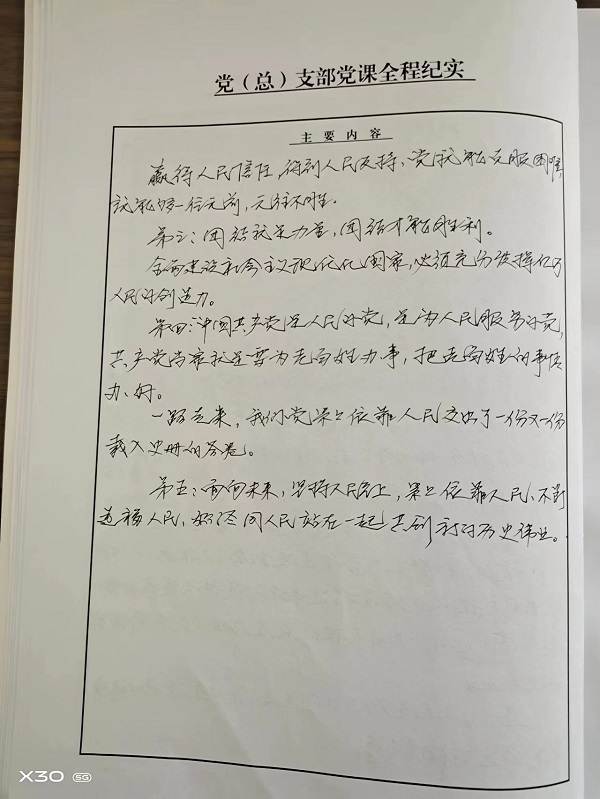 党（总）支部党课全程纪实
主要内容
赢得人民信任，得到人民支持，党就能克服困难，
就能够一往无前，无往不胜。
第三：团结就是力量，团结才能胜利。
全面建设社会主义现代化国家，必须充分发挥亿万
人民的创造力。
第四：中国共产党是人民的党，是为人民服务的党，
共产党当家就是要为老百姓办事，把老百姓的事情
办好。
一路走来，我们党紧紧依靠人民交出了一份又一份
载入史册的答卷。
第五：面向未来，坚持人民至上，紧紧依靠人民、不断
造福人民、始终同人民站在一起，共创新的历史伟业。
X30 5G